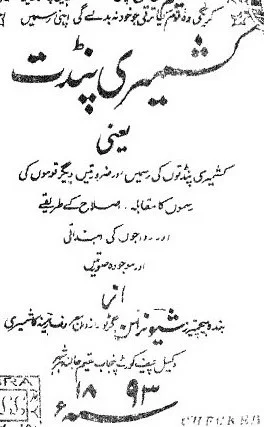 کرنگی وہ قوم کیا ترقی جو خود نہ بدلے گی اپنی رسمیں
کشمیری پنڈت
یعنی
کشمیری پنڈتوں کی رسمیں اور ضرورتیں دیگر قوموں کی
رسموں کا مقابلہ۔ اصلاح کے طریقے
اور رواجوں کی ابتدائی
اور موجودہ صورتیں
از
بندہ ہیچمیرز شیو نراین
وکیل چیف کورٹ پنجاب مقیم جالندھر شہر
۱۸۹۳ء
CHECKED